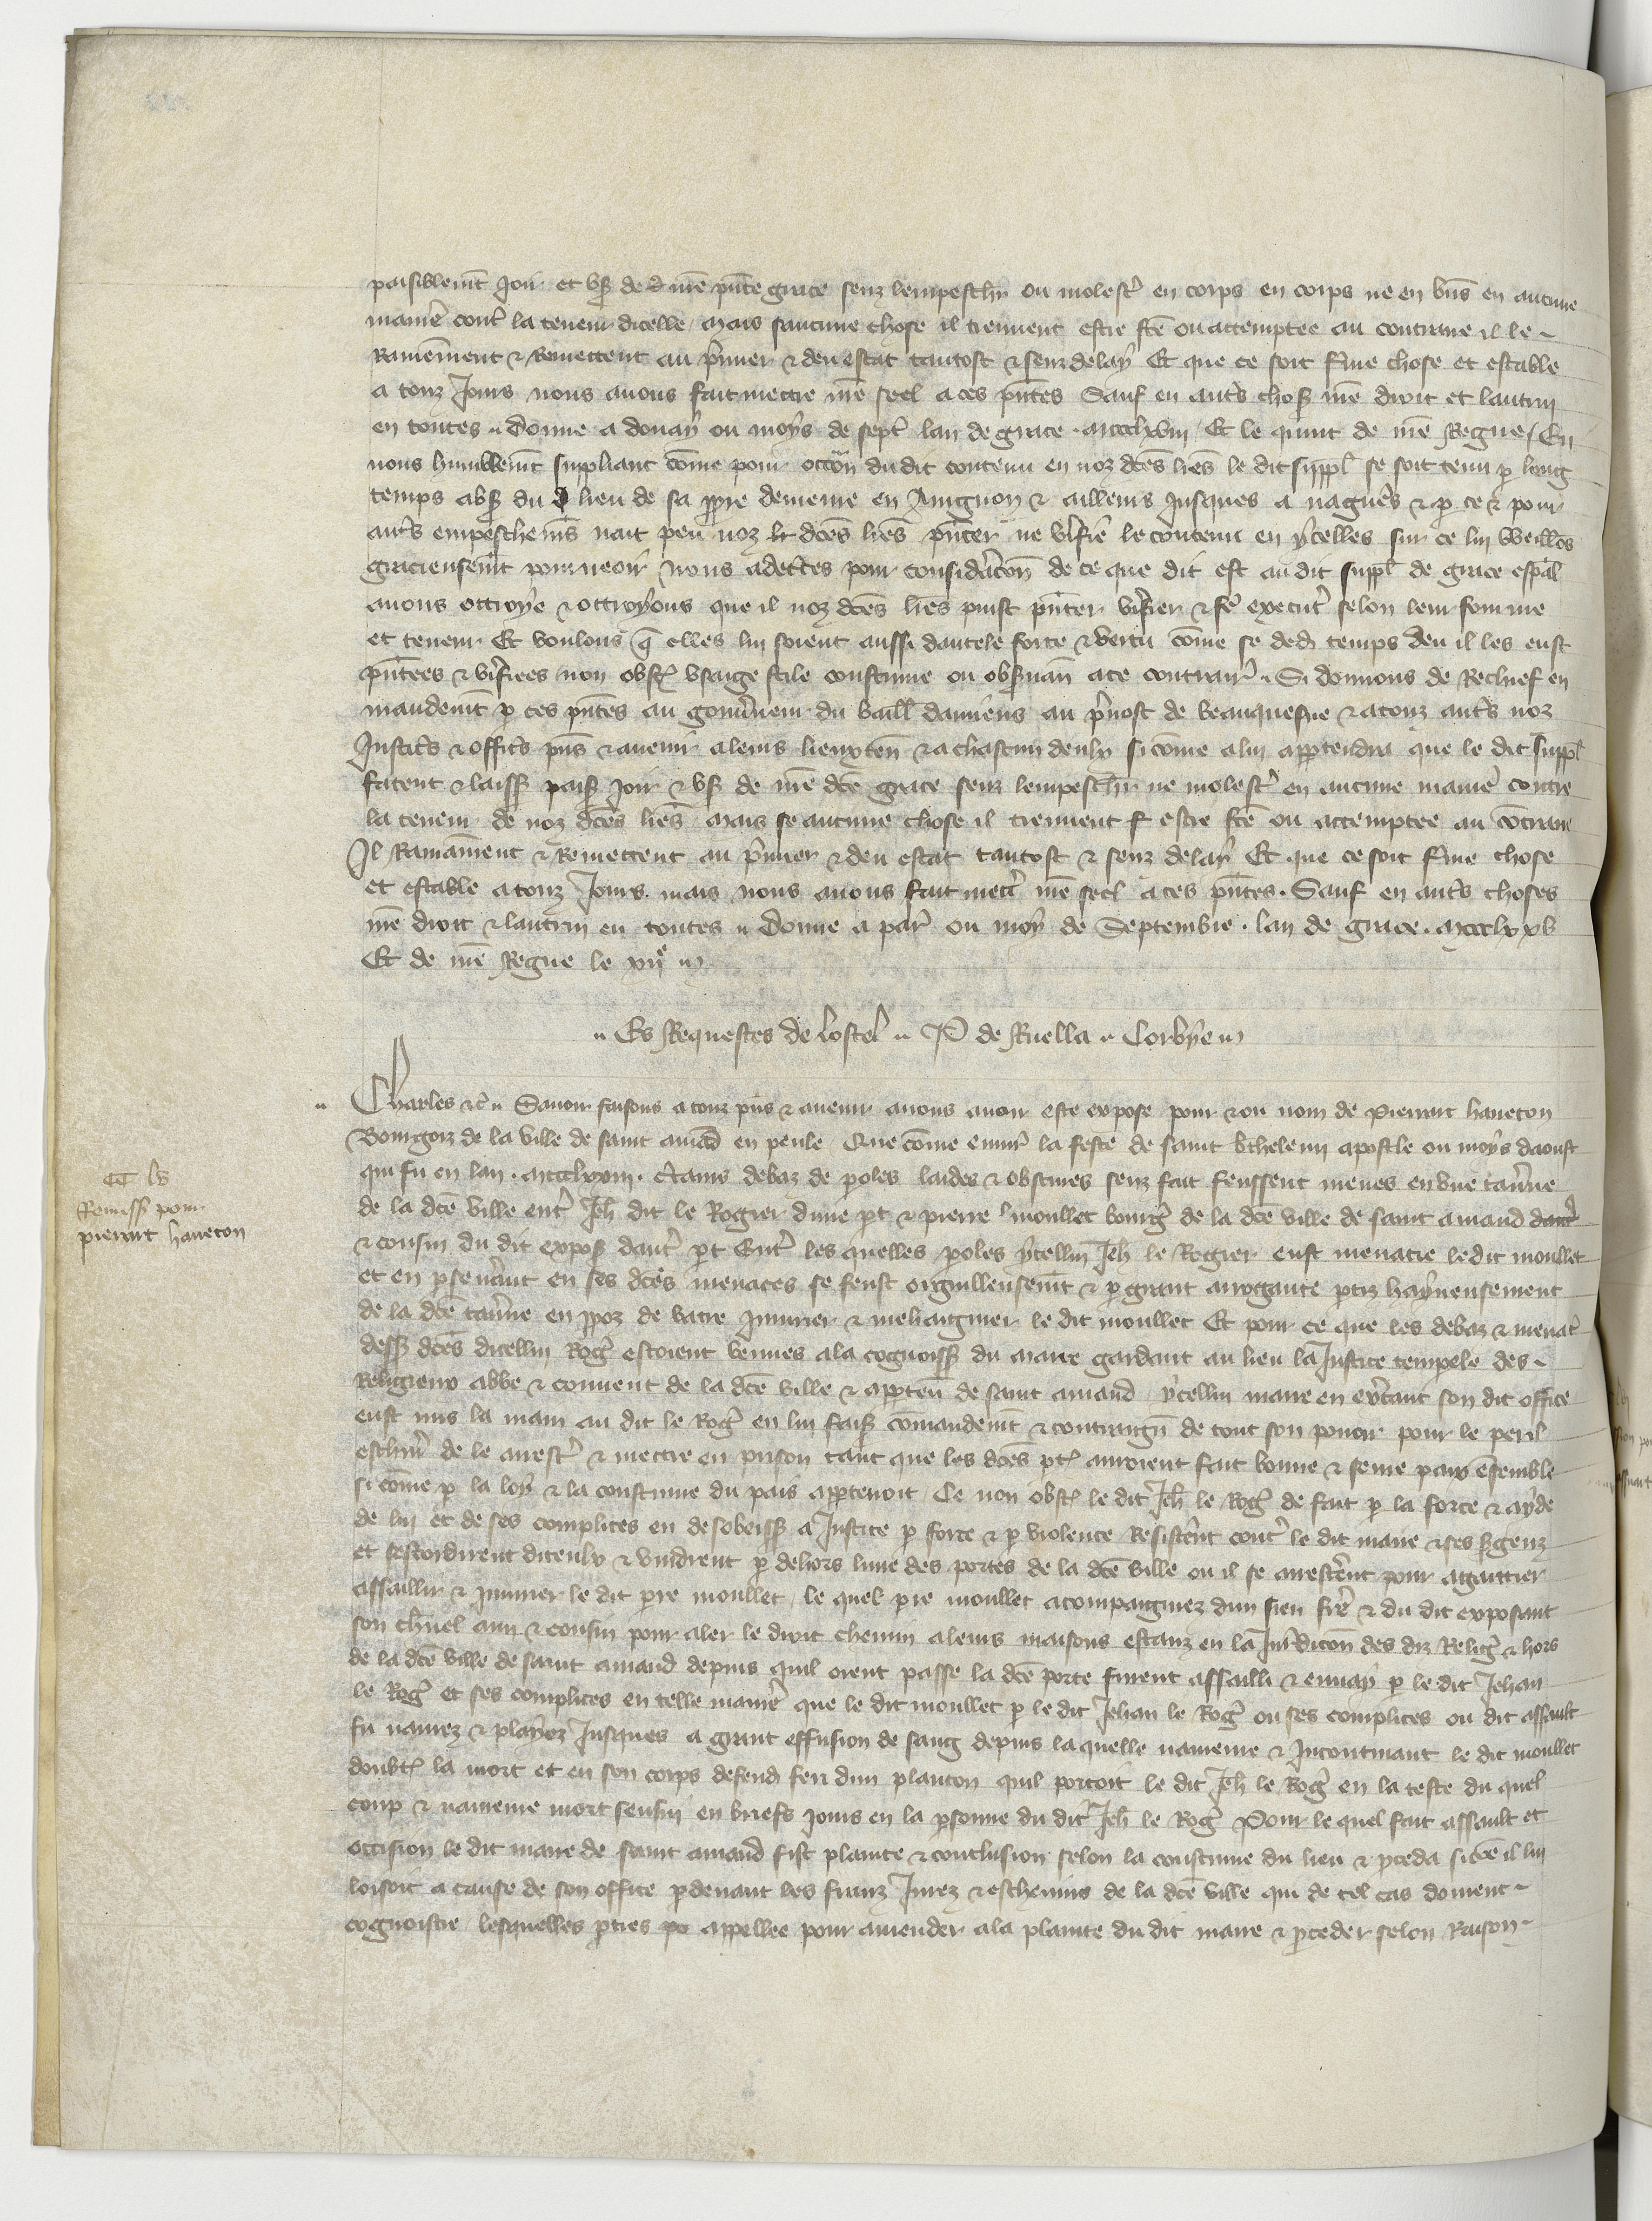 paisiblemēt Joir et vsʒ de nrē pn̄te grace senz lempeschr̄ ou molestʼ en corps en corps ne en bn̄s en aucune
manieʼ contʼ la teneur dicelle / mais saucune chose il treuuent estre fcē ou attemptee au contraire il le
Ramennent ⁊ Remettent au pʼmier ⁊ deu estat tantost ⁊ senz delay Et que ce soit ferme chose et estable
a touz Jours nous auons fait mectre nrē seel a ces pn̄tes Sauf en autʼs chosʒ nrē droit et lautruy
en toutes .. Donne a douay ou moys de septʼ lan de grace . mccclxviij Et le quint de nrē Regne / En
nous humblemēt suppliant cōme pour occōn du dit contenu en noz dcēs lrēs le dit suppl̄ se soit tenu ꝑ long
temps absʒ du lieu de sa ꝓpre demeure en Auignon ⁊ ailleurs Jusques a nagueʼs ⁊ ꝑ ce ⁊ pour
autʼs empeschemēs nait peu noz dcēs lrēs pn̄ter ne vʼifieʼ le contenu en ycelles sur ce lui vueillōs
gracieusemēt pourueoir / Nous adecertes pour considʼacōn de ce que dit est au dit suppl̄ de grace espāl
auons ottroye ⁊ ottroyons que il noz dcēs lrēs puist pn̄ter vʼifier ⁊ feʼ executʼ selon leur forme
et teneur Et voulons q̄ elles lui soient aussi dautele force ⁊ vertu cōme se dedʒ temps deu il les eust
pn̄tees ⁊ vʼifiees non obstʒ vsaige stile coustume ou obseruan̄ a ce contrairʼ .. Si donnons de Rechief en
mandemēt ꝑ ces pn̄tes au gouuʼneur du baill̄ damiens au pʼuost de beauquesne ⁊ a touz autʼs noz
Justicʼs ⁊ officʼs pn̄s ⁊ auenir a leurs lieuxten̄ ⁊ a chascun deulx si cōme a lui appertendra que le dit suppl̄
facent ⁊ laissʒ paisʒ Joir ⁊ vsʒ de nrē dcē grace senz lempeschr̄ ne molestʼ en aucune manieʼ contre
la teneur de noz dcēs lrēs . mais se aucune chose il treuuent estre fcē ou attemptee au cōtraire
Il Ramainnent ⁊ Remettent au pʼmier ⁊ deu estat tantost ⁊ senz delay Et que ce soit ferme chose
et estable a touz Jours mais nous auons fait mectʼ nrē seel a ces pn̄tes . Sauf en autʼs choses
nrē droit ⁊ lautruy en toutes .. Donne a parʼ ou moys de Septembre . lan de grace . mccclxxv
Et de nrē Regne le xijᵉ
.. Es Requestes de lostel .. P de Ruella .. Corbye
.. Charles ⁊cʼ .. Sauoir faisons a touz pn̄s ⁊ auenir a nous auoir este expose pour ⁊ ou nom de Pierart haueton
Bourgoiz de la ville de saint amād en peule Que cōme enuirʼ la feste de saint bʼthelemi apostle ou moys daoust
qui fu en lan . mccclxxiij . Certains debaz de ꝑoles laides ⁊ obscures senz fait feussent meues en vne tauʼne
de la dcē ville entʼ Jeh̄ dit le Rogier dune ꝑt ⁊ pierre moullet bourgʼ de la dcē ville de saint amand
⁊ cousin du dit exposʒ dautʼ ꝑt Entʼ les quelles ꝑoles ycellui Jeh̄ le Rogier eust menacie le dit moullet
et en ꝑseuʼant en ses dcēs menaces se feust orguilleusemēt ⁊ ꝑ grant arrogance ꝑtiz hayneusement
de la dcē tauʼne en ꝓpoz de batre Jniurier ⁊ mehaigner le dit moullet Et pour ce que les debaz ⁊ menacʼ
dessʒ dcēs dicellui Rogʼ estoient venues a la cognoissʒ du maire gardant au lieu la Justice tempele des
Religieux abbe ⁊ conuent de la dcē ville ⁊ appten̄ de saint amand / ycellui maire en exʼcant son dit office
eust mis la main au dit le Rogʼ en lui faisʒ cōmandemēt ⁊ contraign̄ de tout son pouoir pour le peril
escheuʼ de le arrestʼ ⁊ mectre en prison tant que les dcēs ꝑtʒ auroient fait bonne ⁊ ferme paix ēsemble
si cōme ꝑ la loy ⁊ la coustume du pais appertenoit / Ce non obstʒ le dit Jeh̄ le Rogʼ de fait ꝑ la force ⁊ ayde
de lui et de ses complices en desobeissʒ a Justice ꝑ force ⁊ ꝑ violence Resistēʼnt contʼ le dit maire ⁊ ses sergenz
et sescondirent diceulx ⁊ vindrent ꝑ dehors lune des portes de la dcē ville ou il se arresteʼnt pour agaittier
assaillir ⁊ Jniurier le dit pʼre moullet / le quel pʼre moullet acompaignez dun sien freʼ ⁊ du dit exposant
son chʼnel ami ⁊ cousin pour aler le droit chemin a leurs maisons estanz en la Juridicōn des diz Religʼ ⁊ hors
de la dcē ville de saint amand depuis quil oient passe la dcē porte furent assailli ⁊ enuay ꝑ le dit Jehan
le Rogʼ et ses complices en telle manieʼ que le dit moullet ꝑ le dit Jehan le Rogʼ ou ses complices ou dit assault
fu naurez ⁊ playez Jusques a grant effusion de sang depuis la quelle naureure ⁊ Jncontinant le dit moullet
doubtʒ la mort et en son corps defendʒ feri dun plancon quil portoit le dit Jeh̄ le Rogʼ en la teste du quel
coup ⁊ naureure mort sensui en briefs jours en la ꝑsonne du dit Jeh̄ le Rogʼ Pour le quel fait assault et
occision le dit maire de saint amand fist plainte ⁊ conclusion selon la coustume du lieu ⁊ ꝓceda si cōe il lui
loisoit a cause de son office ꝑdeuant les franz Jurez ⁊ escheuins de la dcē ville qui de tel cas doiuent
cognoistre / lesquelles ꝑties appellee pour amender a la plainte du dit maire ⁊ ꝓceder selon Raison
CC lv
Remissʒ pour
pierart haueton